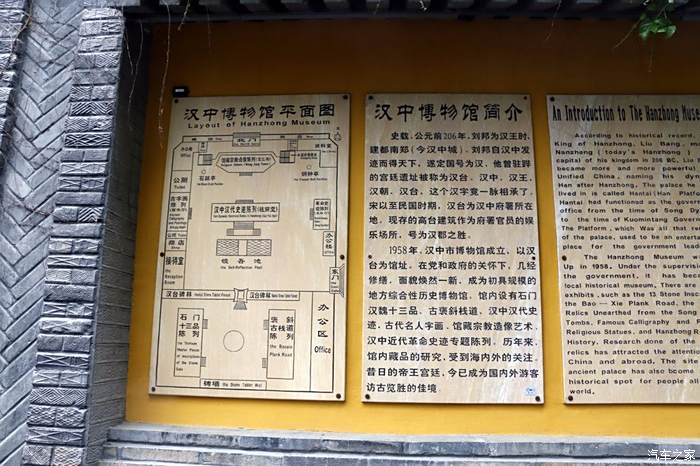 汉中博物馆平面图
Layout of Hanzhong Museum
北门
办公楼
公厕
Toilet
石鼓亭
铜钟亭
汉中汉代史迹陈列(桂荫堂)
商店
Shop
接待室
the Reception Room
饮吾池
the Self-Reflection Pool
办公楼
东门
汉台碑林
汉台碑林
石门十三品陈列
褒斜古栈道陈列
the Baoxie Plank Road
办公区
Office
砖墙
汉中博物馆简介
史载,公元前206年,刘邦为汉王时,
建都南郑(今汉中城)。刘邦自汉中发
迹而得天下,遂定国号为汉,他曾驻跸
的宫廷遗址被称为汉台。汉中、汉王、
汉朝、汉台,这个汉字竟一脉相承了。
宋以至民国时期,汉台为汉中府署所在
地。现存的高台建筑作为府署官员的娱
乐场所,号为汉郡之胜。
1958年,汉中市博物馆成立,以汉
台为馆址。在党和政府的关怀下,几经
修缮,面貌焕然一新,成为初具规模的
地方综合性历史博物馆。馆内设有石门
汉魏十三品、古褒斜栈道、汉中汉代史
迹、古代名人字画、馆藏宗教造像艺术、
汉中近代革命史迹专题陈列。历年来,
馆内藏品的研究,受到海内外的关注。
昔日的帝王宫廷,今已成为国内外游客
访古览胜的佳境。
An Introduction to The Hanzhong Muse
According to historical record,
King of Hanzhong, Liu Bang, ma
Nanzheng (today's Hanzhong)
capital of his kingdom in 206 BC. Liu
became more and more powerful
Unified China, naming his dyn
Han after Hanzhong. The palace
lived in is called Hantai (Han Platform
Hantai had functioned as the govern
office from the time of Song Dy
to the time of Kuomintang Govern
The Platform, which Was all that re
of the palace, used to be an enterta
place for the government lead
The Hanzhong Museum w
Up in 1958. Under the supervis
the government, it has become
local historical museum. There are
exhibits, such as the 13 Stone
the Bao — Xie Plank Road, the
Relics Unearthed from the Song
Tombs, Famous Calligraphy and P
Religious Statues, and Hanzhong R
History. Research done of the
relics has attracted the attention
China and abroad. The site
ancient palace has also become
historical spot for people all
world.
汽车之家